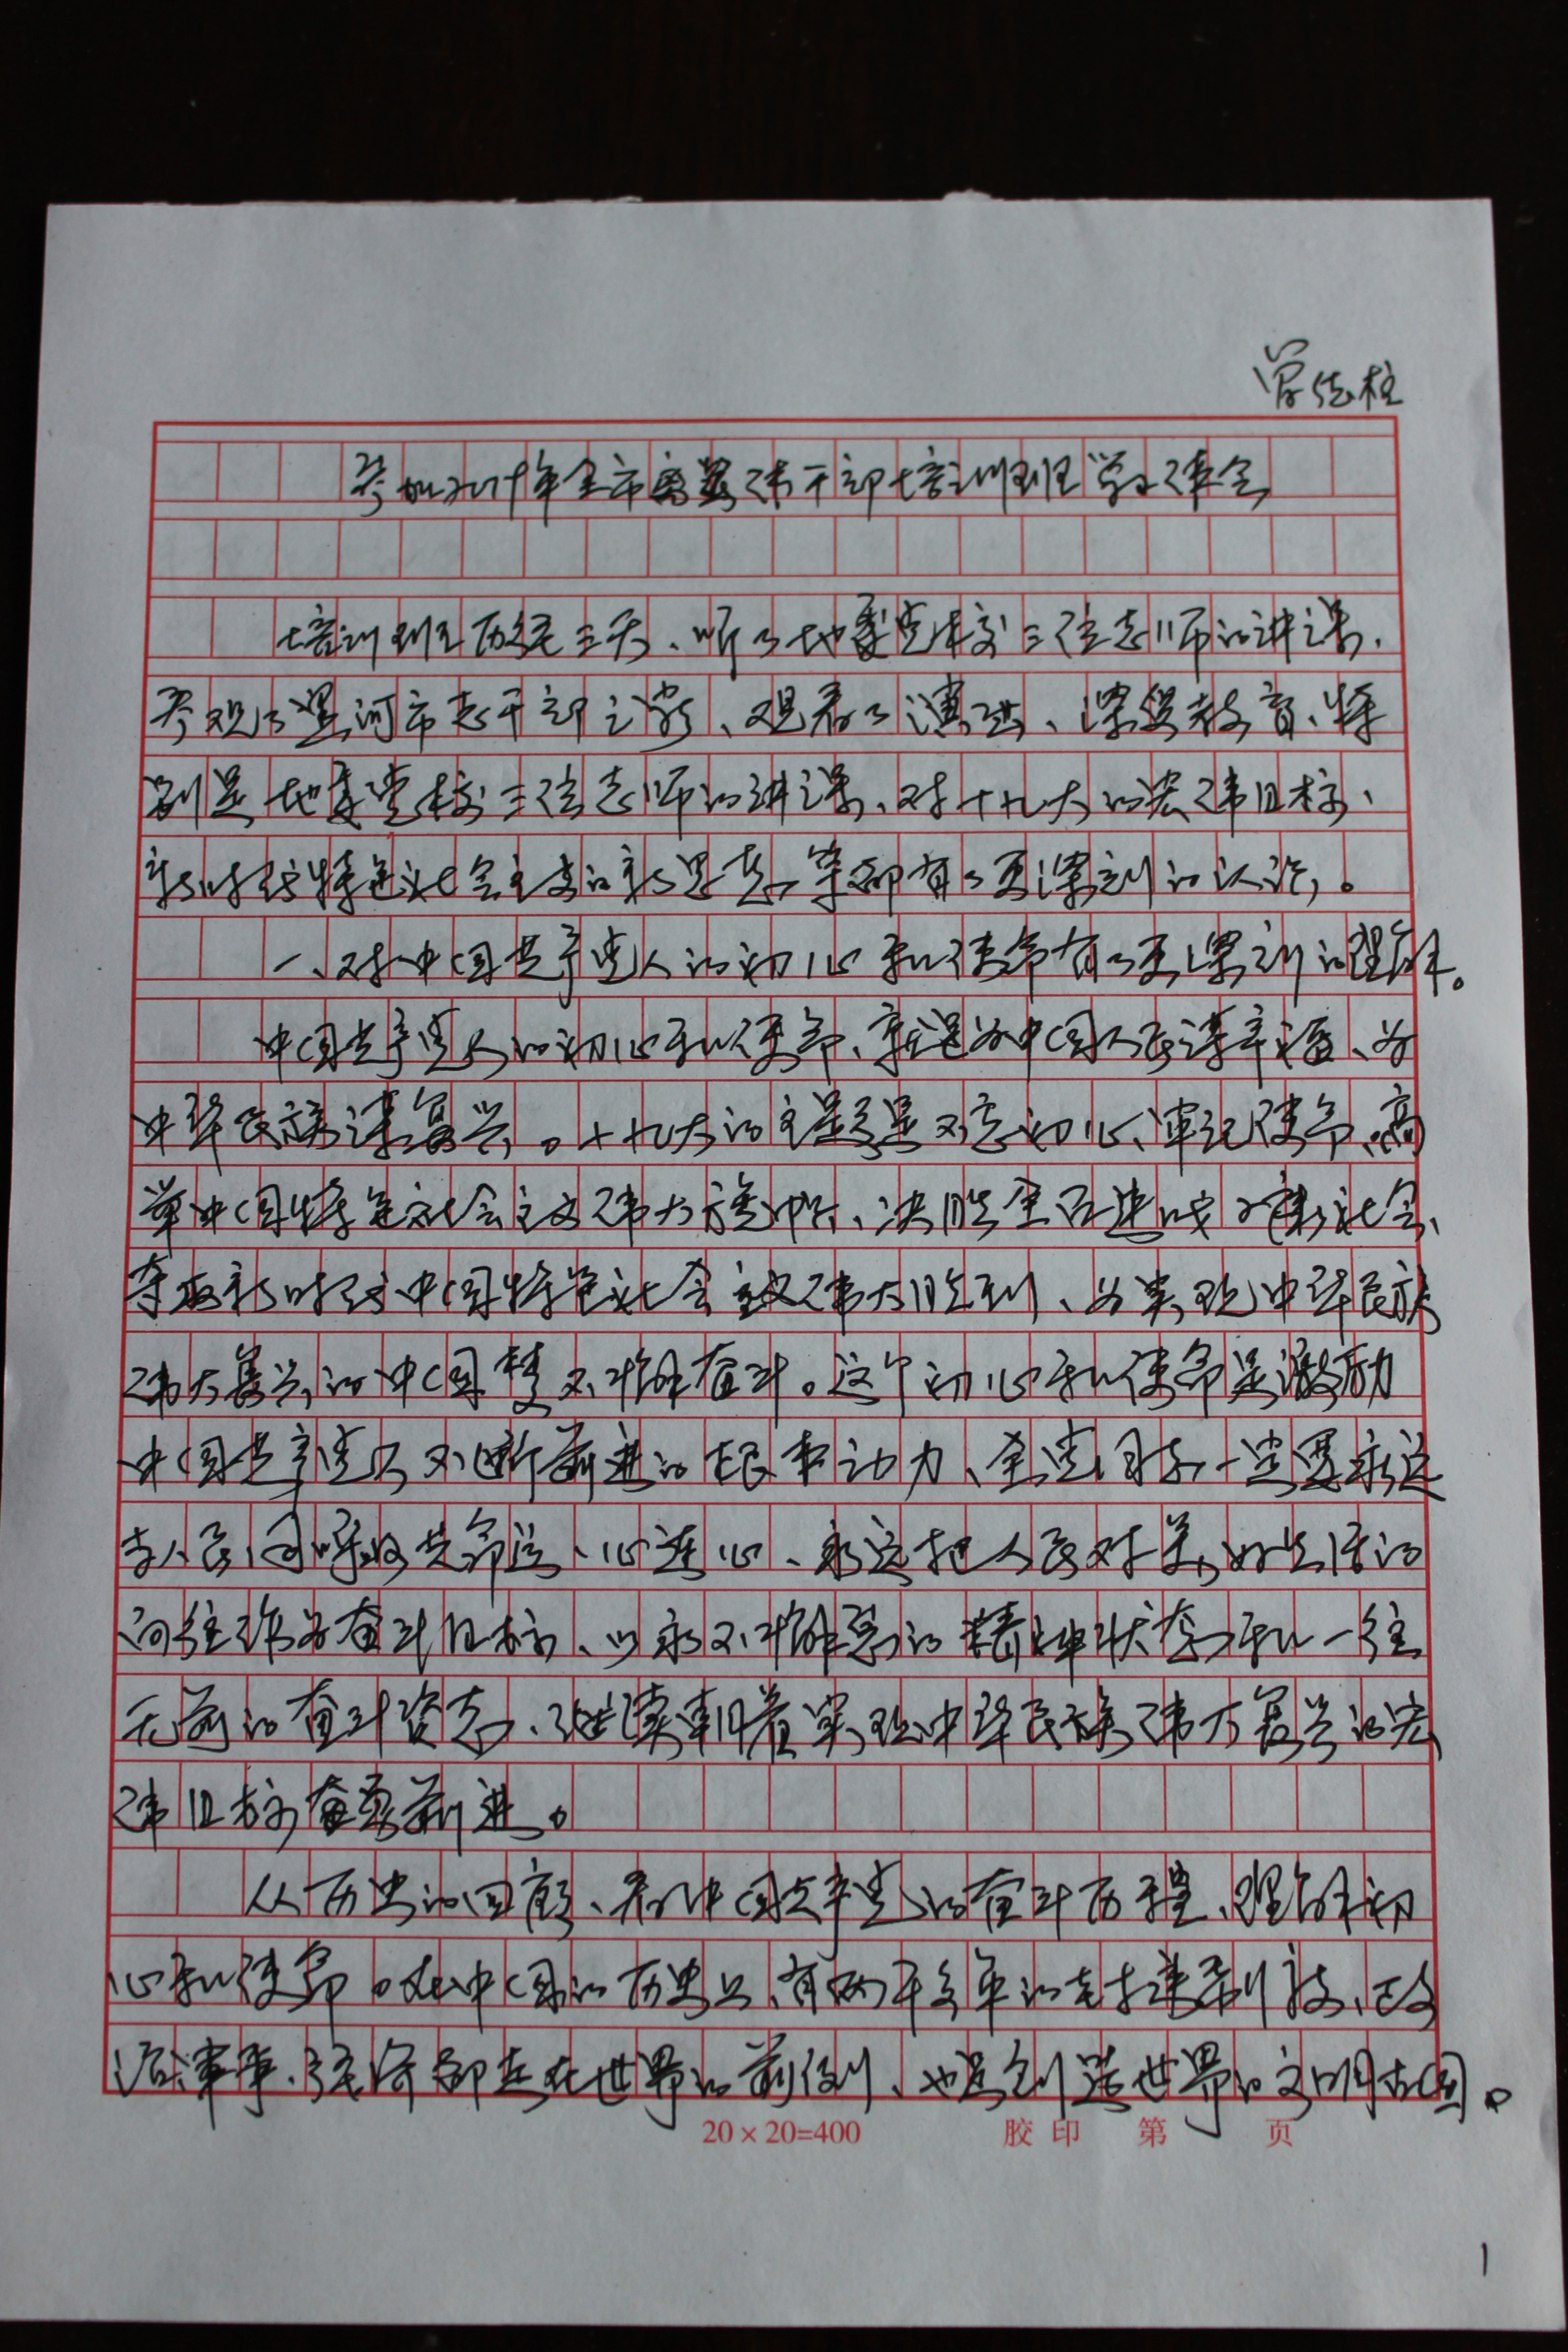 培训班历经三天、听了地委党校三位老师的讲课、
参观了漯河市老干部之家、观看了演出、深受教育、特
别是地委党校三位老师的讲课、对十九大的宏伟目标、
新时代特色社会主义的新思想等都有了更深刻的认识。
一、对中国共产党人的初心和使命有了更深刻的理解。
中国共产党人的初心和使命、就是为中国人民谋幸福、为
中华民族谋复兴。十九大的主题是不忘初心、牢记使命、高
举中国特色社会主义伟大旗帜、决胜全面建成小康社会、
夺取新时代中国特色社会主义伟大胜利、为实现中华民族
伟大复兴的中国梦不懈奋斗。这个初心和使命是激励
中国共产党人不断前进的根本动力、全党同志一定要永远
与人民同呼吸共命运、心连心、永远把人民对美好生活的
向往作为奋斗目标、以永不懈怠的精神状态和一往
无前的奋斗姿态、继续朝着实现中华民族伟大复兴的宏
伟目标奋勇前进。
从历史的回顾、看中国共产党的奋斗历程、理解初
心和使命。在中国的历史上、有两千多年的封建制度、政
治、军事、经济都走在世界的前列、也是创造世界的文明古国。
20×20=400 胶印 第 页
1